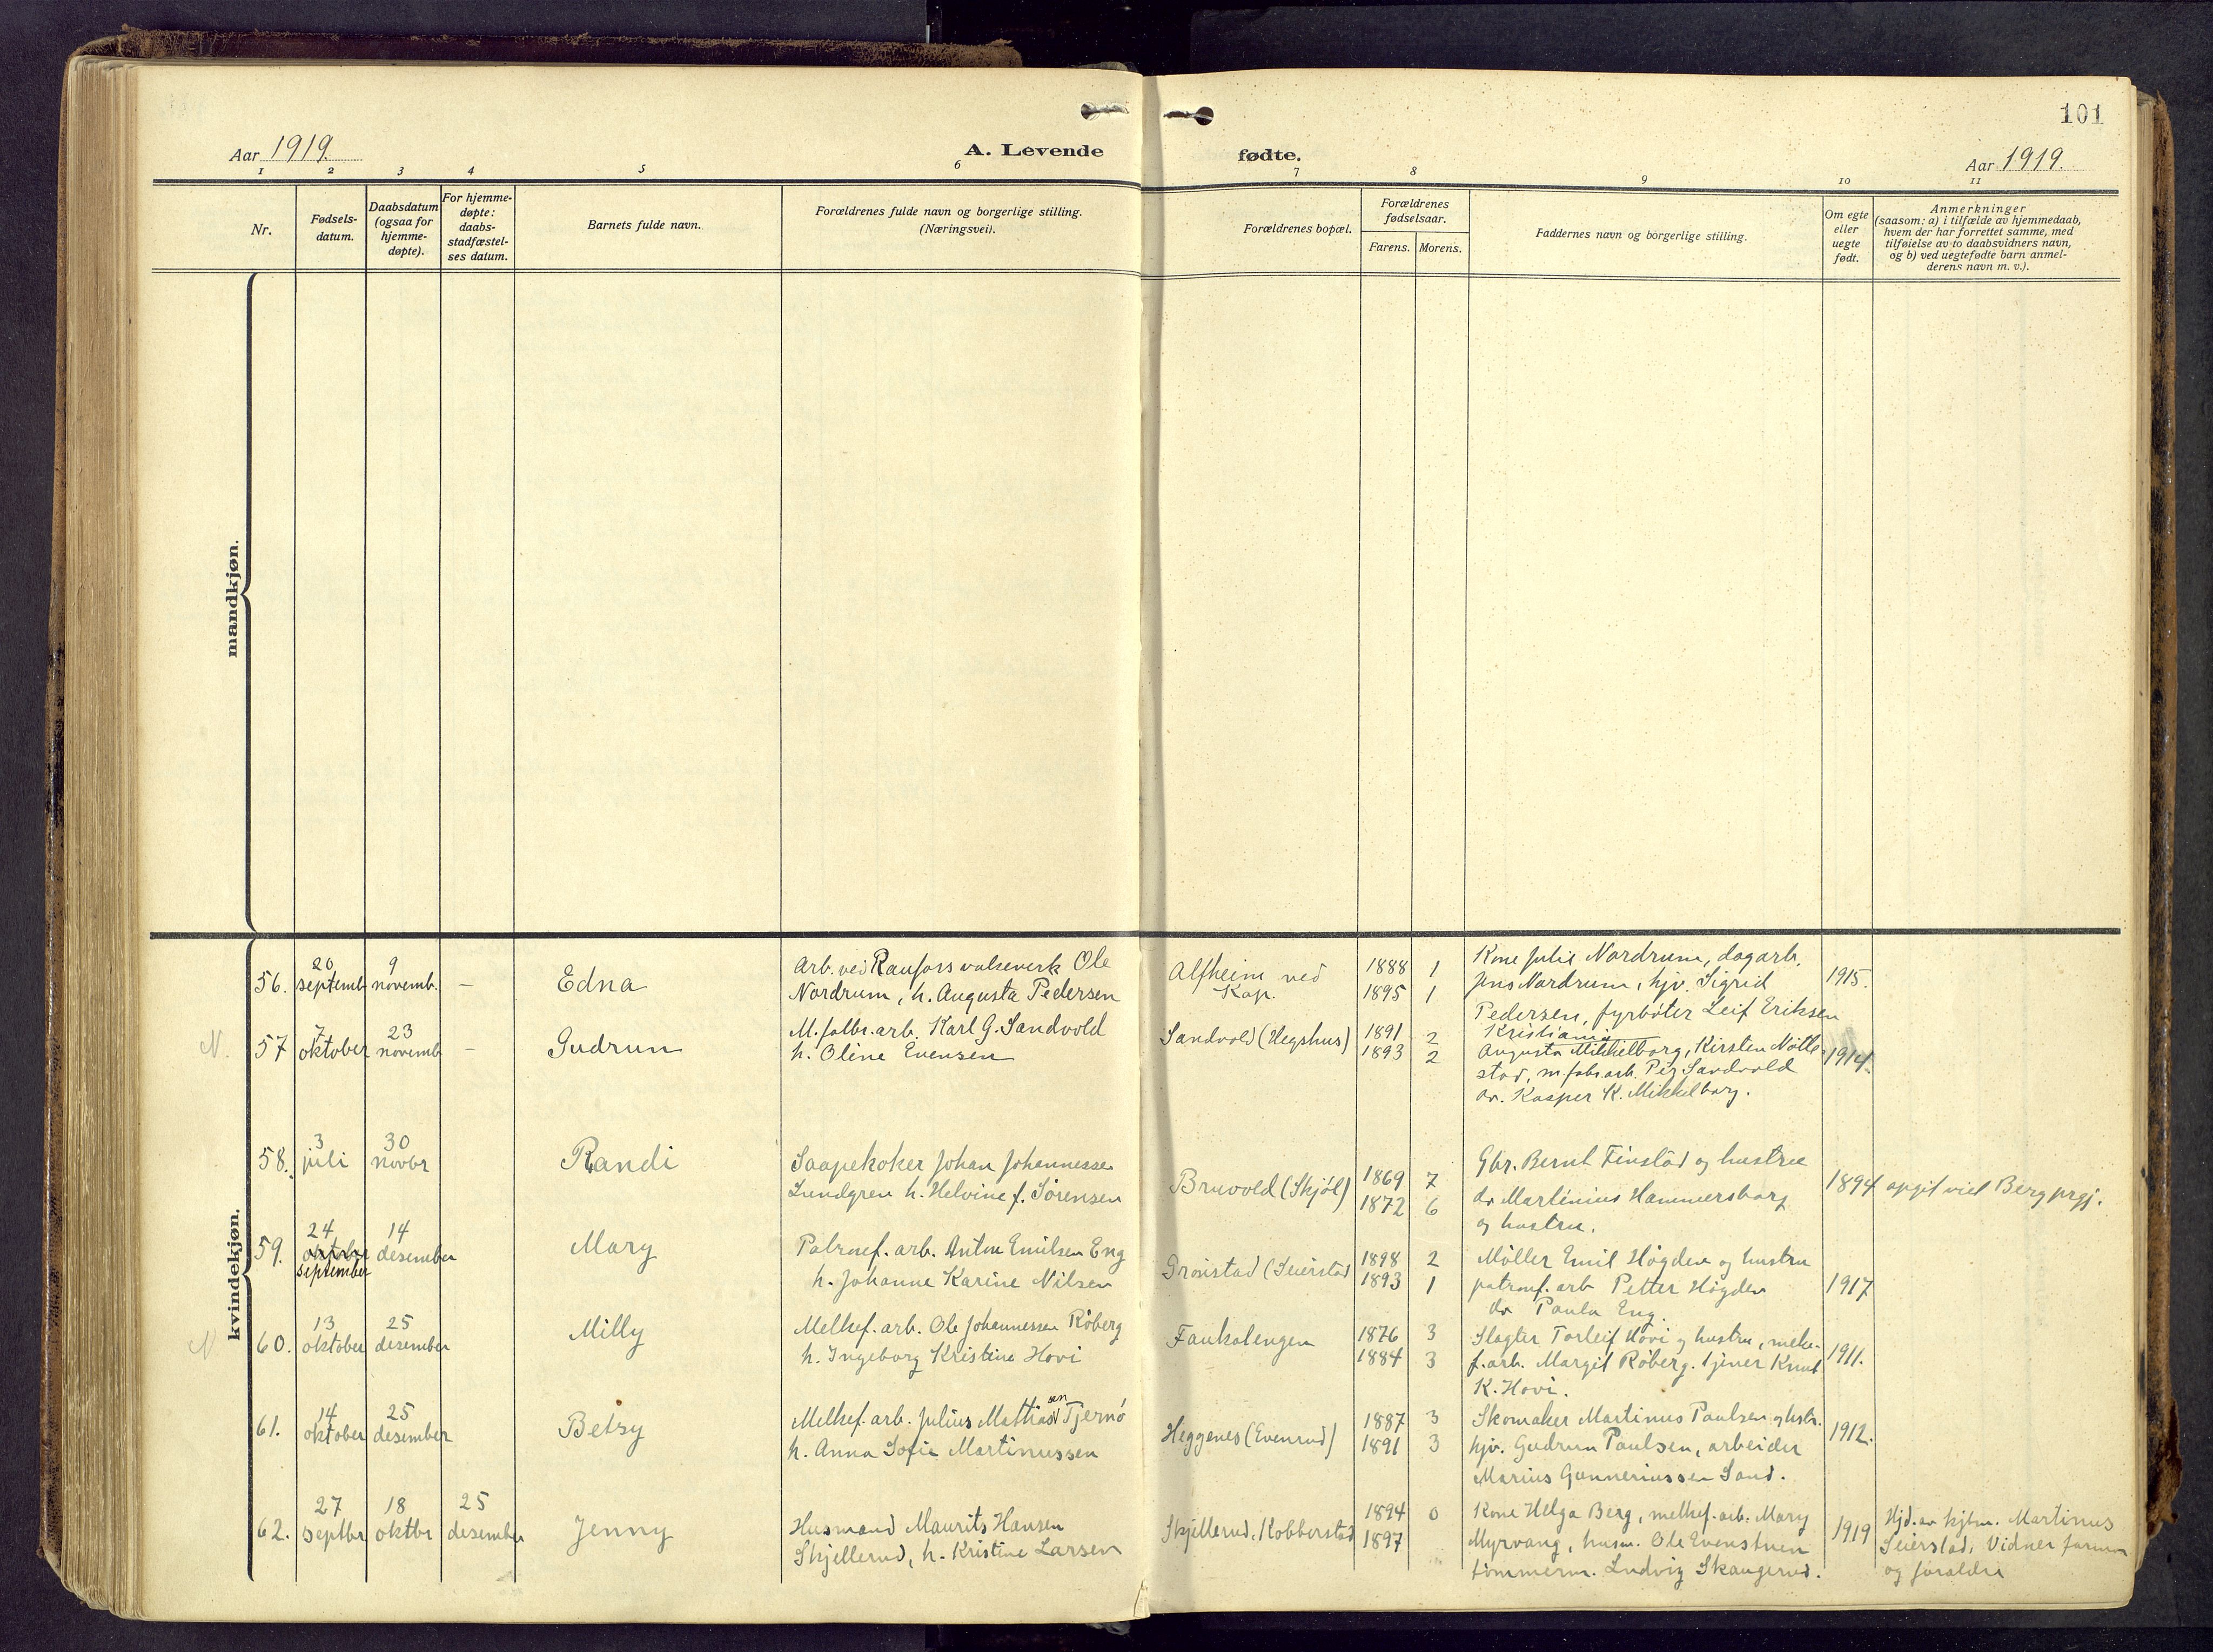 101
Aar 1919.
A. Levende
fødte.
Aar 1919.
1 2 3 4 5 6 7 8 9 10 11
Nr.
Fødsels-
datum.
Daabsdatum
(ogsaa for
hjemme-
døpte).
For hjemme-
døpte:
daabs-
stadfæstel-
ses datum.
Barnets fulde navn.
Forældrenes fulde navn og borgerlige stilling.
(Næringsvei).
Forældrenes bopæl.
Forældrenes
fødselsaar.
Farens. Morens.
Faddernes navn og borgerlige stilling.
Om egte
eller
uegte
født.
Anmerkninger
(saasom: a) i tilfælde av hjemmedaab,
hvem der har forrettet samme, med
tilføielse av to daabsvidners navn,
og b) ved uegtefødte barn anmel-
derens navn m. v.).
mandkjøn.
kvindekjøn.
56.
20
septemb
9
novemb.
–
Edna
Arb. ved Raufoss valseverk Ole
Nordrum, h. Augusta Pedersen
Alfheim ved
Kap.
1888 1
1895 1
Kone Julie Nordrum, dagarb.
Jens Nordrum, hjv. Sigrid
Pedersen, fyrbøter Leif Eriksen
Kristiania
1915.
N.
57
7
oktober
23
novemb
–
Gudrun
M.fabr.arb. Karl G. Sandvold
h. Oline Evensen
Sandvold (Hegshus)
1891 2
1893 2
Augusta Mikkelborg, Kirsten Nølle-
stad, m.fabr.arb. Per Sandvold
do. Kasper K. Mikkelborg.
1914.
58.
3
juli
30
novbr
Randi
Saapekoker Johan Johannessen
Lundgren h. Helvine f. Sørensen
Bruvold (Skjøl)
1869 7
1872 6
Gbr. Bernt Finstad og hustru
do Martinius Hammersborg
og hustru.
1894
opgit viet Berg prgj.
59.
24
oktober
september
14
desember
Mary
Patronf. arb. Anton Emilsen Eng
h. Johanne Karine Nilsen
Grønstad (Seierstad
1898 2
1893 1
Møller Emil Høgden og hustru
patronf. arb Petter Høgden
do Paula Eng.
1917
N
60.
13
oktober
25
desember
Milly
Melkef. arb. Ole Johannessen Røberg
h. Ingeborg Kristine Hovi
Faukalengen
1876 3
1884 3
Slagter Torleif Hovi og hustru, melke-
f. arb. Margit Røberg. tjener Knut
K. Hovi.
1911.
61.
14
oktober
25
desember
Betsy
Melkef. arb. Julius Mathiassen Tjernø
h. Anna Sofie Martinussen
Heggenes (Evenrud)
1887 3
1891 3
Skomaker Martinus Paulsen og hstr.
hjv. Gudrun Paulsen, arbeider
Marius Gunneriussen Sand.
1912.
62.
27
septbr
18
oktbr
25
desember
Jenny
Husmand Maurits Hansen
Skjellerud, h. Kristine Larsen
Skjellerud, Kobberstad
1894 0
1897
Kone Helga Berg, melkef. arb. Mary
Myrvang, husm. Ole Evenstuen
tømmerm. Ludvig Skaugerud.
1919
Hjd. av Martinus
Seierstad, Vidner
og forældre